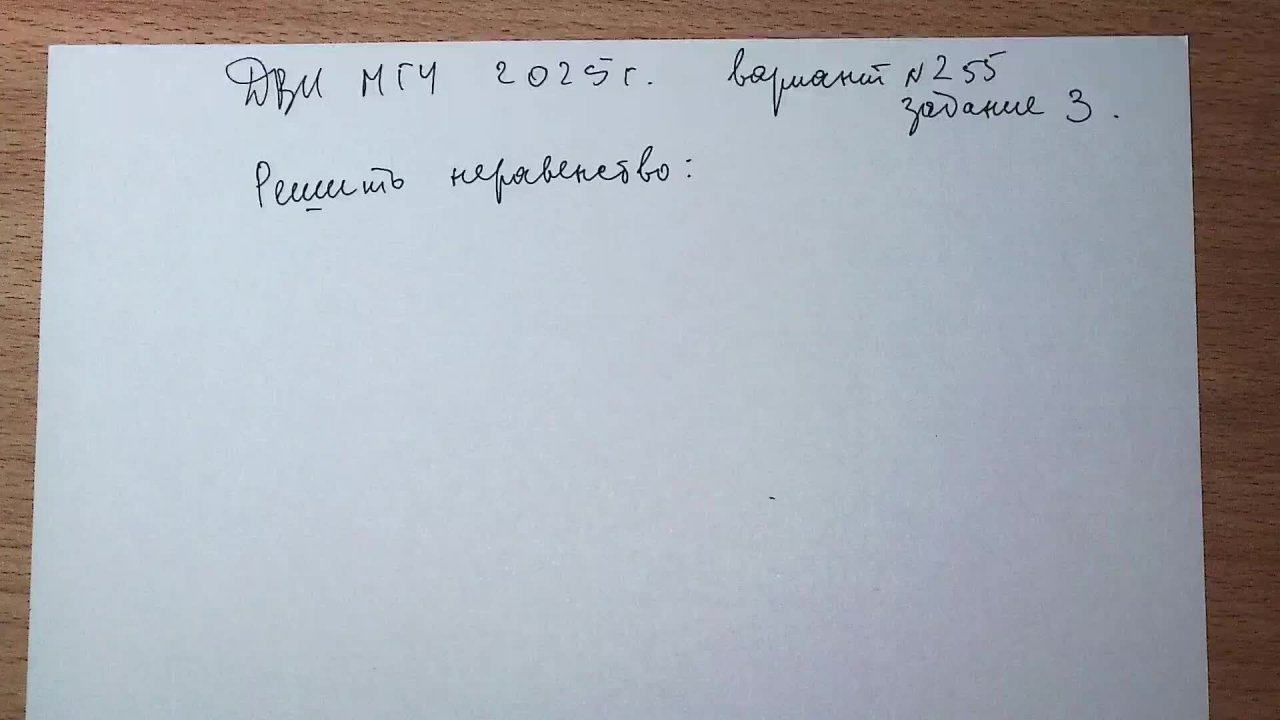 ДВИ МГУ 2025г. вариант №255
задание 3.
Решить неравенство: